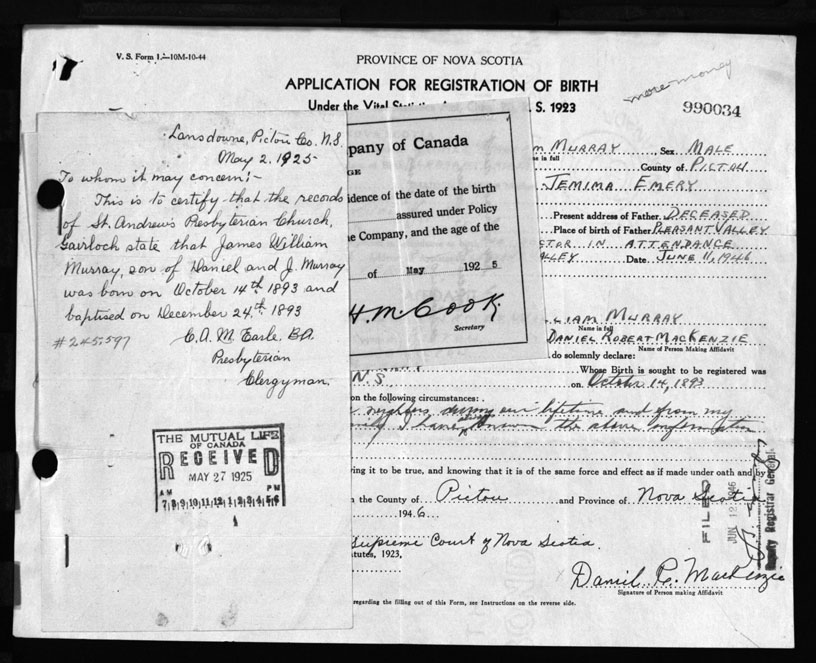 V. S. Form 1.—10M-10-44
PROVINCE OF NOVA SCOTIA
APPLICATION FOR REGISTRATION OF BIRTH
Under the Vital S. 1923
more money
990034
Lansdowne, Pictou Co. N.S.
May 2. 1925
To whom it may concern:-
This is to certify that the records
of St. Andrew's Presbyterian Church,
Gairloch state that James William
Murray, son of Daniel and J. Murray
was born on October 14th 1893 and
baptised on December 24th. 1893
#245,597
C. A. M. Earle, B.A.
Presbyterian
Clergyman.
THE MUTUAL LIFE
OF CANADA
RECEIVED
MAY 27 1925
AM PM
7 8 9 10 11 12 1 2 3 4 5 6
pany of Canada
GE
idence of the date of the birth
assured under Policy
e Company, and the age of the
of May 192 5
H. M. Cook.
Secretary
M MURRAY, Sex MALE
e in full
County of PICTOU
JEMIMA EMERY
Present address of Father DECEASED
Place of birth of Father PLEASANT VALLEY
CTOR IN ATTENDANCE
ALLEY Date JUNE 11, 1946
LLIAM MURRAY
Name in full
DANIEL ROBERT MACKENZIE
Name of Person Making Affidavit
do solemnly declare:
Whose Birth is sought to be registered was
N.S. on October 14, 1893
on the following circumstances:
neighbors, during our lifetime and from my
mily I have known the above information
ving it to be true, and knowing that it is of the same force and effect as if made under oath and by
n the County of Pictou and Province of Nova Scotia
1946
Supreme Court of Nova Scotia.
tutes, 1923,
FILED
JUN 12 1946
Deputy Registrar General
Daniel R. MacKenzie
Signature of Person making Affidavit
regarding the filling out of this Form, see Instructions on the reverse side.